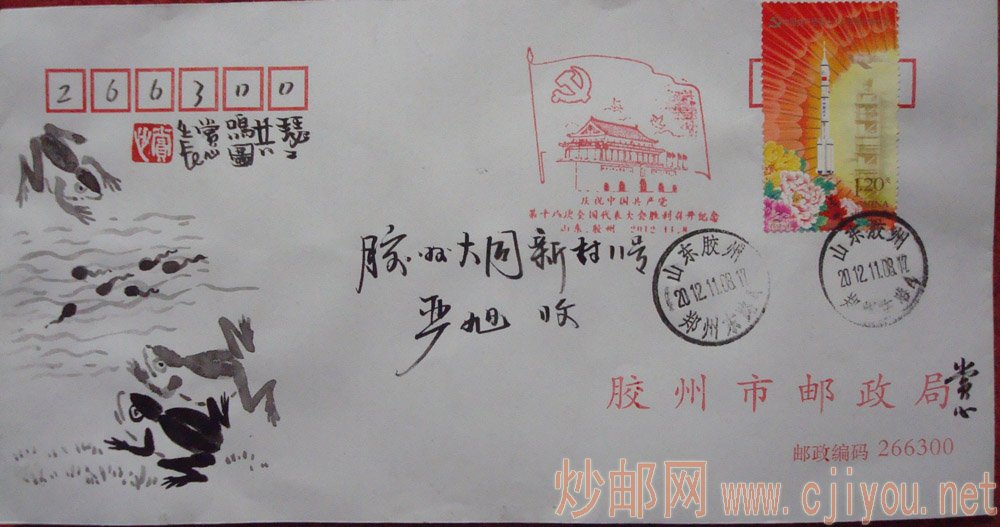 266300
庆祝中国共产党
第十八次全国代表大会胜利召开纪念
山东.胶州 2012.11.8
1.20元
CHINA
胶州大同新村11号
严旭 收
山东胶州
2012.11.08.17
郑州
山东胶州
2012.11.08.17
胶州市邮政局
赏心
邮政编码 266300
炒邮网 www.cjiyou.net